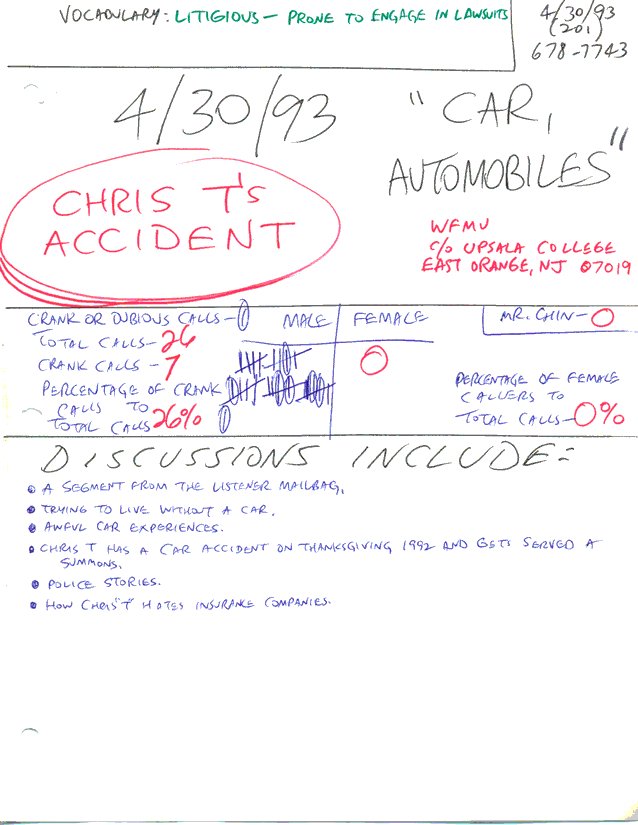 VOCABULARY: LITIGIOUS — PRONE TO ENGAGE IN LAWSUITS
4/30/93
(201)
678-7743
4/30/93
"CAR,
AUTOMOBILES"
CHRIS T'S
ACCIDENT
WFMU
C/O UPSALA COLLEGE
EAST ORANGE, NJ 07019
CRANK OR DUBIOUS CALLS - 0
TOTAL CALLS - 26
CRANK CALLS - 7
PERCENTAGE OF CRANK
CALLS TO
TOTAL CALLS 26%
MALE
FEMALE
0
MR. CHIN - 0
PERCENTAGE OF FEMALE
CALLERS TO
TOTAL CALLS - 0%
DISCUSSIONS INCLUDE=
• A SEGMENT FROM THE LISTENER MAILBAG.
• TRYING TO LIVE WITHOUT A CAR.
• AWFUL CAR EXPERIENCES.
• CHRIS T HAS A CAR ACCIDENT ON THANKSGIVING 1992 AND GETS SERVED A
SUMMONS.
• POLICE STORIES.
• HOW CHRIS "T" HATES INSURANCE COMPANIES.